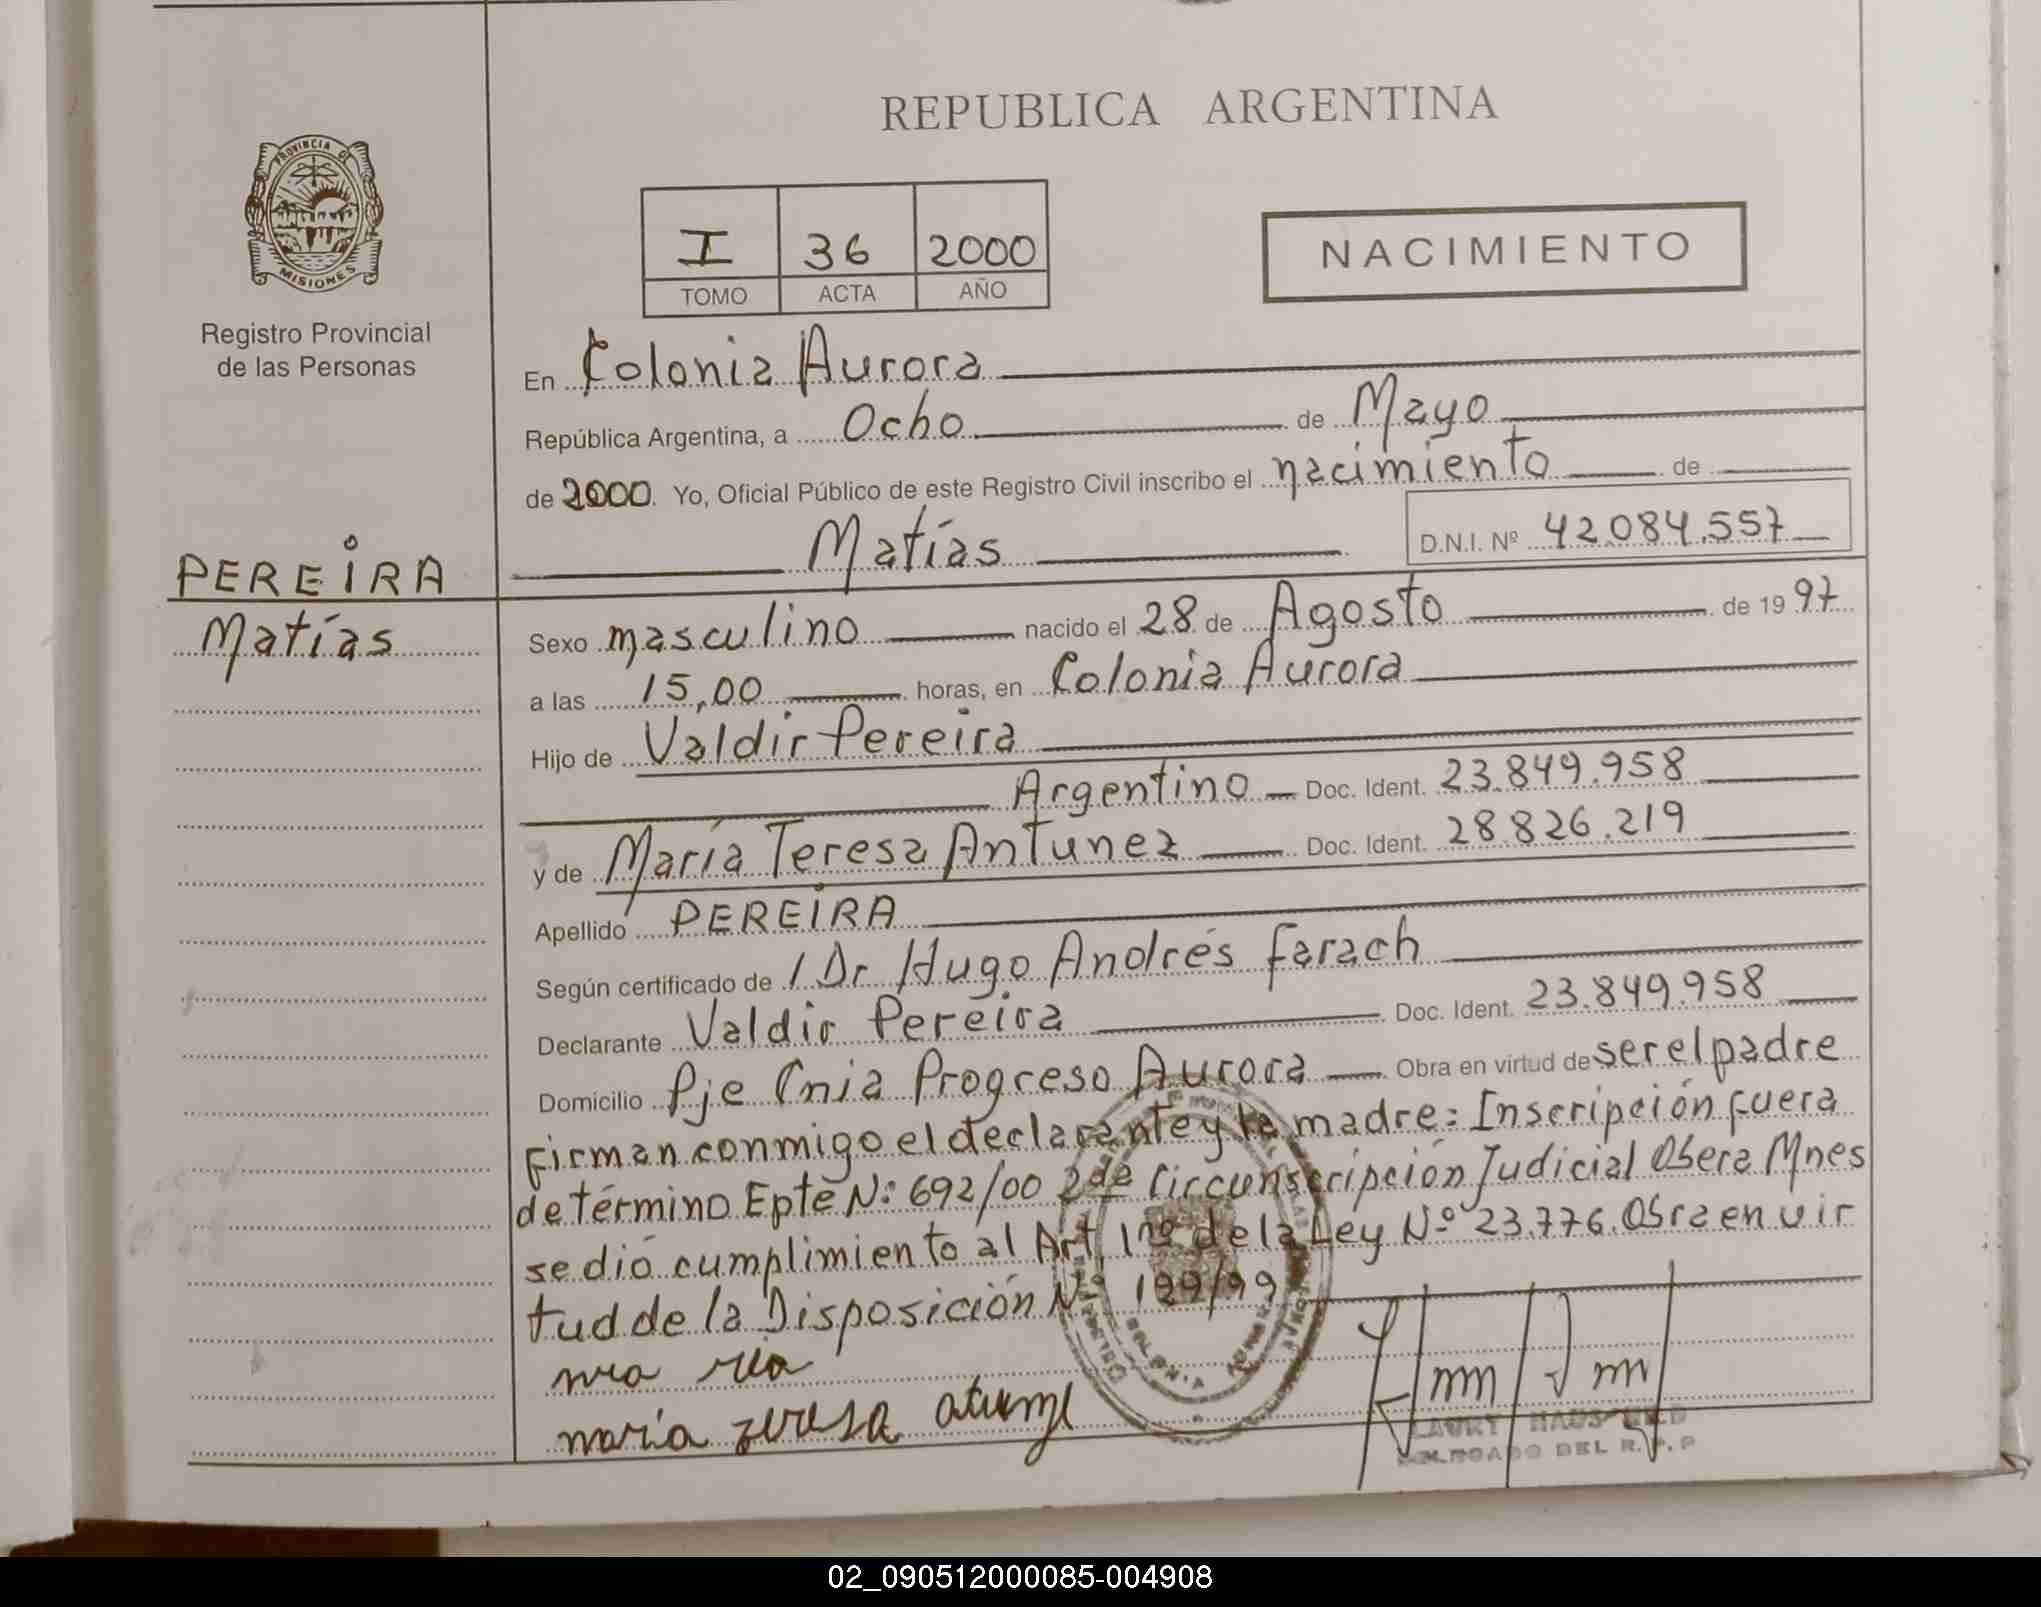 REPUBLICA ARGENTINA
PROVINCIA DE
MISIONES
Registro Provincial
de las Personas
I 36 2000
TOMO ACTA AÑO
NACIMIENTO
En Colonia Aurora
República Argentina, a Ocho de Mayo
de 2000. Yo, Oficial Público de este Registro Civil inscribo el nacimiento de
Matías D.N.I. Nº 42.084.557
PEREIRA
Matías
Sexo masculino nacido el 28 de Agosto de 1997
a las 15,00 horas, en Colonia Aurora
Hijo de Valdir Pereira
Argentino Doc. Ident. 23.849.958
y de María Teresa Antunez Doc. Ident. 28826.219
Apellido PEREIRA
Según certificado de Dr Hugo Andrés Farach
Declarante Valdir Pereira Doc. Ident. 23.849.958
Domicilio Pje Cnia Progreso Aurora Obra en virtud de ser el padre
Firman conmigo el declarante y la madre: Inscripción fuera
de término Epte Nº 692/00 2da Circunscripción Judicial Obera Mnes
se dió cumplimiento al Art. 1ro de la Ley Nº 23.776. Obra en vir
tud de la Disposición Nº 199/99
maría
DELEGADO DEL R.P.P
02_090512000085-004908